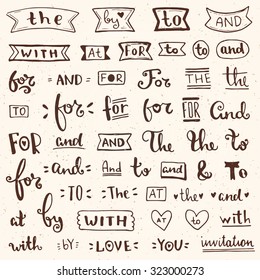 the by to AND
WITH AT FOR to to and
for -AND- FOR For THE the
TO for for FOR and
FOR and AND The the to
for and And to and & To
-TO- -The- AT the and
at by WITH at to with
with -by- -LOVE- -YOU- invitation
shutterstock
IMAGE ID: 323000273
www.shutterstock.com